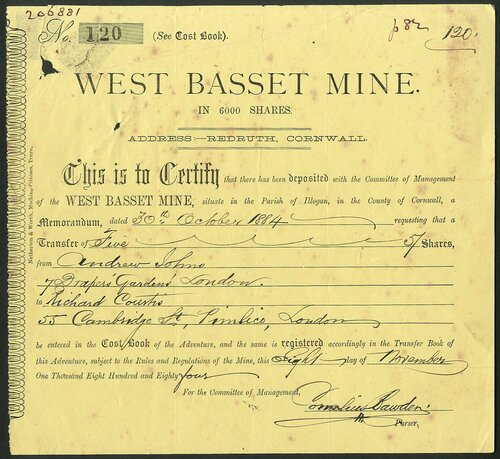 206881
No. 120 (See Cost Book). p82 120
WEST BASSET MINE.
IN 6000 SHARES.
ADDRESS—REDRUTH, CORNWALL.
This is to Certify that there has been deposited with the Committee of Management
of the WEST BASSET MINE, situate in the Parish of Illogan, in the County of Cornwall, a
Memorandum, dated 30th October 1884 requesting that a
Transfer of Five 5/ Shares,
from Andrew Johns
7 Drapers Gardens London.
to Richard Courtis
55 Cambridge St, Pimlico, London
be entered in the Cost Book of the Adventure, and the same is registered accordingly in the Transfer Book of
this Adventure, subject to the Rules and Regulations of the Mine, this Eight day of November
One Thousand Eight Hundred and Eighty four
For the Committee of Management,
Cornelius Bawden
Purser.
Netherton & Worth, Machine-Printers, Truro.